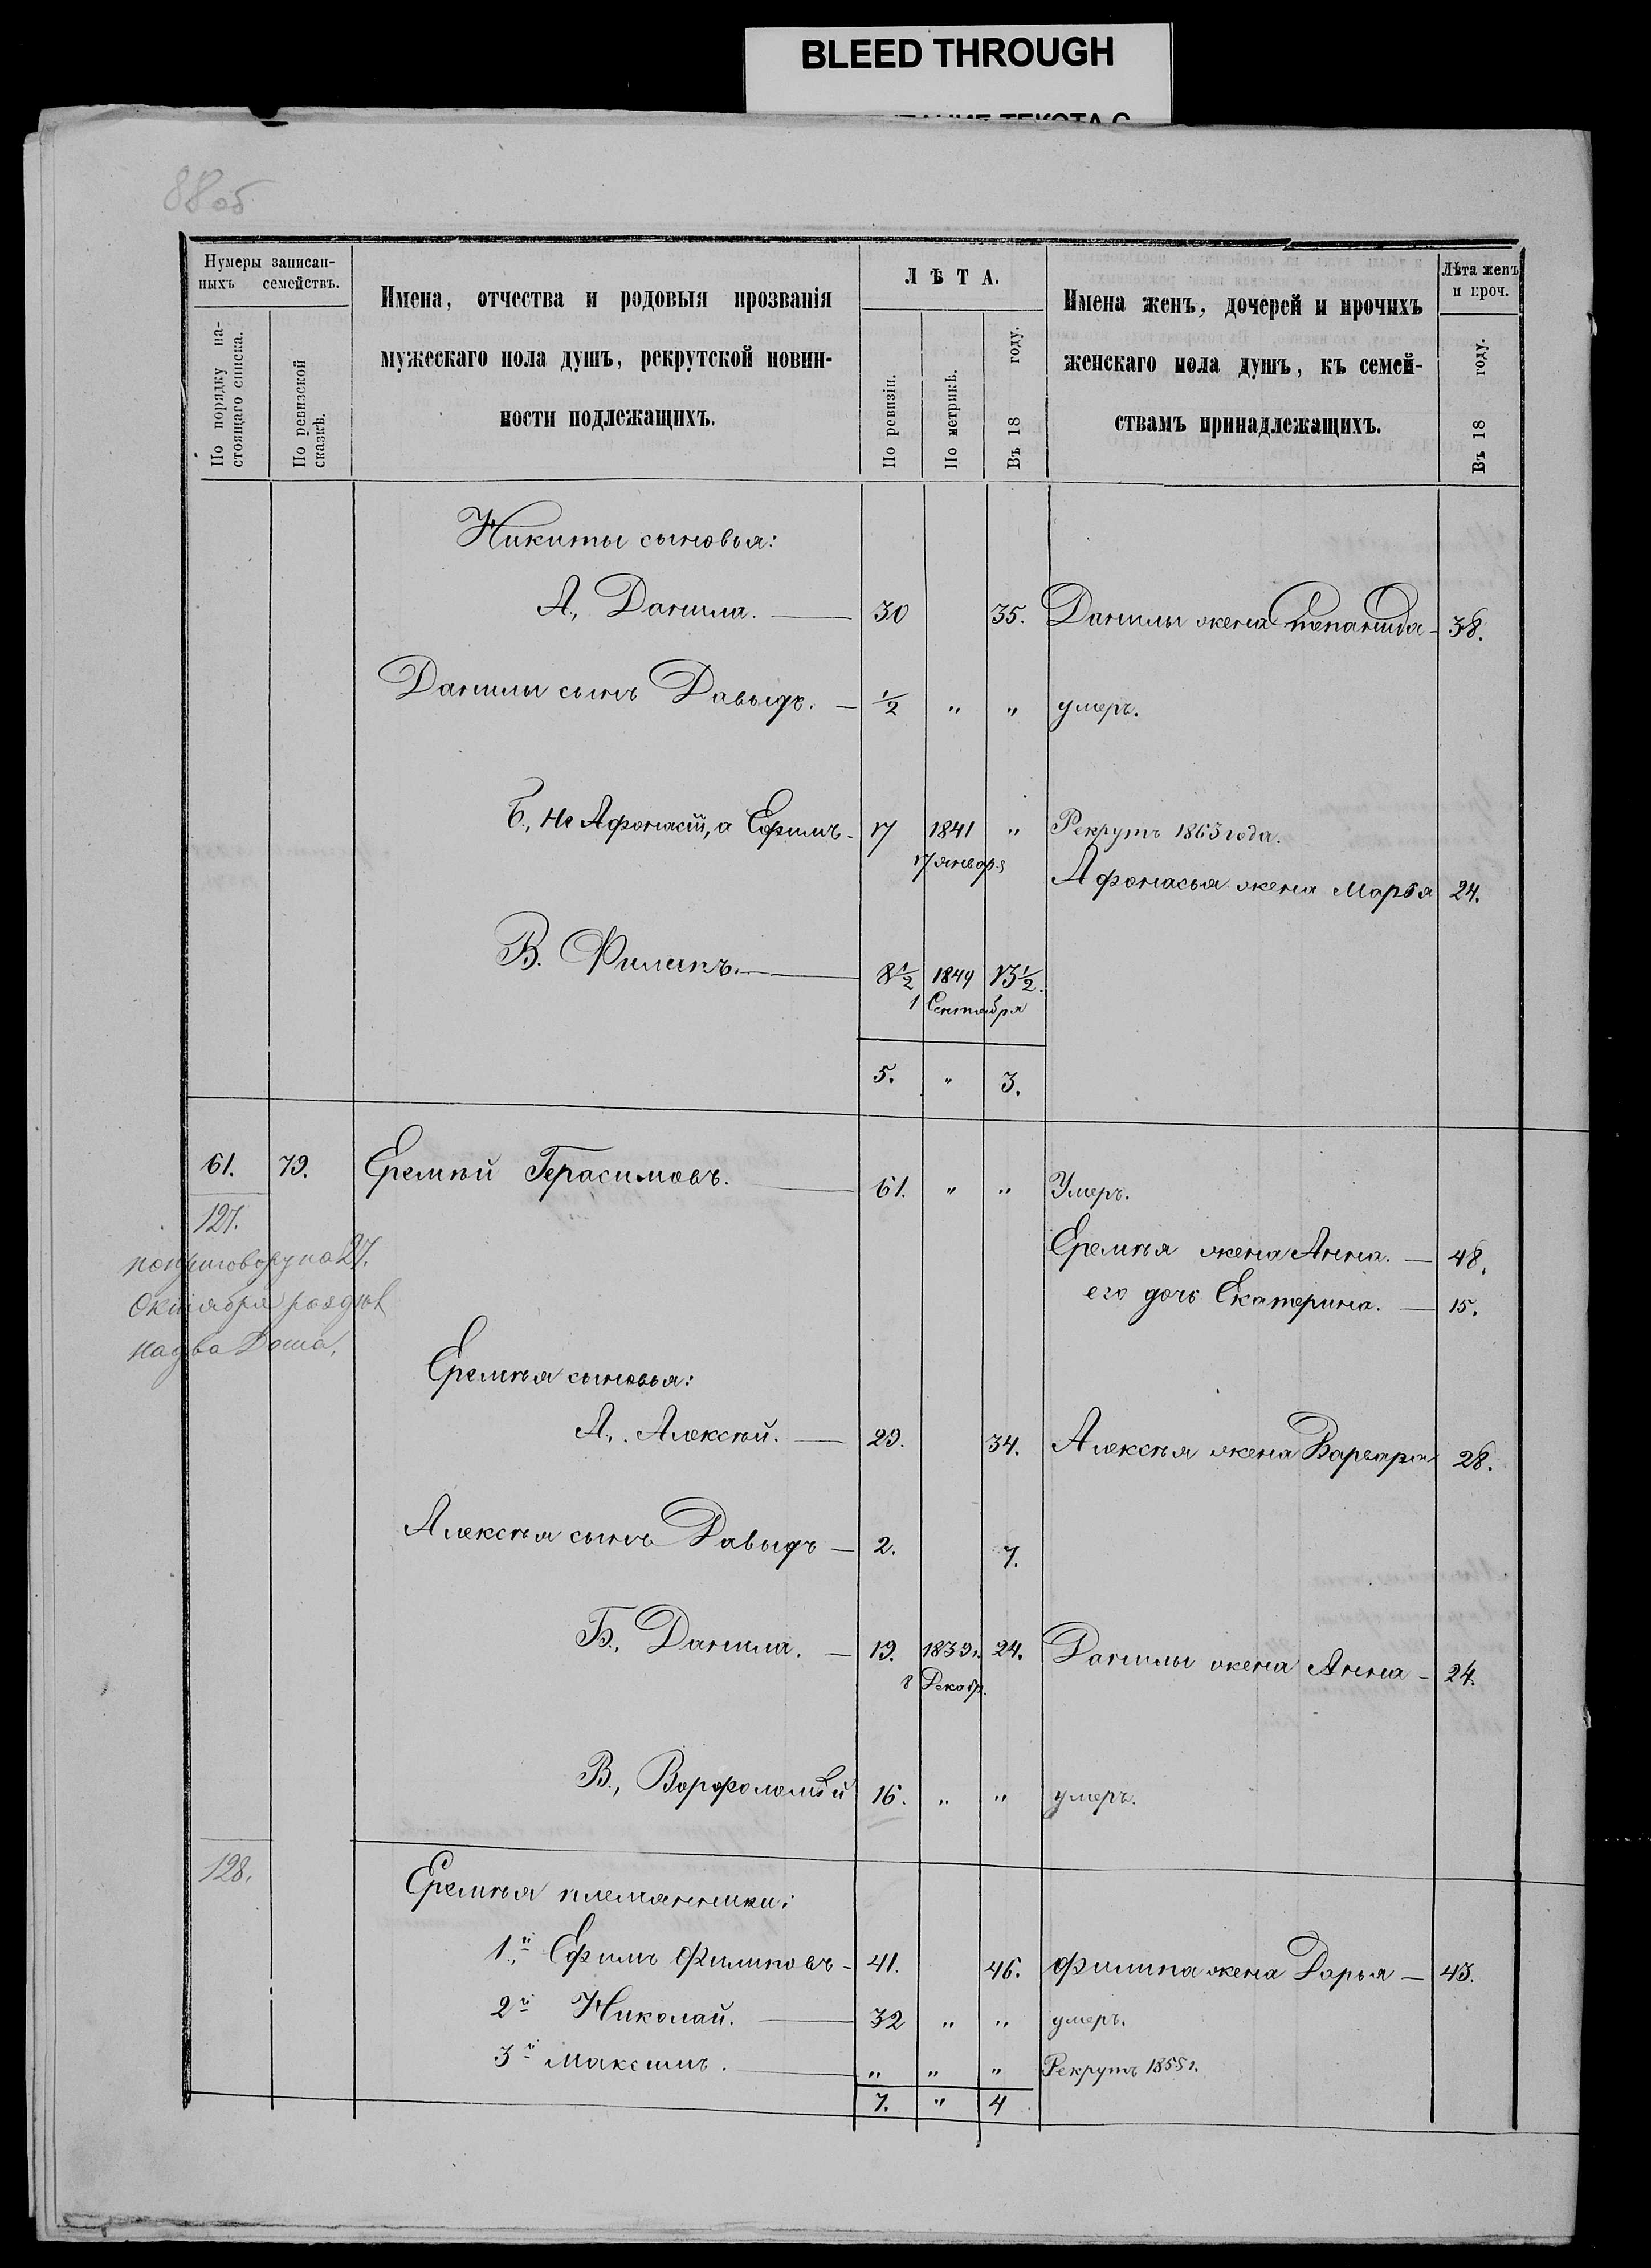 BLEED THROUGH
88 об
Нумеры записан-
ныхъ семействъ.
По порядку на-
стоящаго списка.
По ревизской
сказкѣ.
Имена, отчества и родовыя прозванія
мужескаго пола душъ, рекрутской повин-
ности подлежащихъ.
ЛѢТА.
По ревизіи.
По метрикѣ.
Въ 18 году.
Имена женъ, дочерей и прочихъ
женскаго пола душъ, къ семей-
ствамъ принадлежащихъ.
Лѣта женъ
и проч.
Въ 18 году.
Никиты сыновья:
А., Данила. — 30 35. Данилы жена Степанида — 38.
Данилы сынъ Давыдъ. — 1/2 " " умеръ.
Б., Не Афонасій, а Ефимъ — 17 1841 " Рекрутъ 1863 года.
17 январ.
Афонасья жена Марья 24.
В. Филипъ. — 8 1/2 1849 13 1/2.
1 Сентября
5. " 3.
61. 79. Еремѣй Герасимовъ. — 61. " " Умеръ.
127.
Еремѣя жена Анна. — 48.
по приговору на 27.
Октября раздѣл
на два Дома,
его дочь Екатерина. — 15.
Еремѣя сыновья:
А., Алексѣй. — 29. 34. Алексѣя жена Варвара 28.
Алексѣя сынъ Давыдъ — 2. 7.
Б., Данила. — 19. 1839г. 24. Данилы жена Анна — 24.
8 Декабр.
В., Варфоломѣй 16. " " умеръ.
128.
Еремѣя племянники:
1й Ефимъ Филиповъ — 41. 46. Филипа жена Дарья — 43.
2й Николай. — 32 " " умеръ.
3й Максимъ. — " " " Рекрутъ 1855 г.
7. " 4